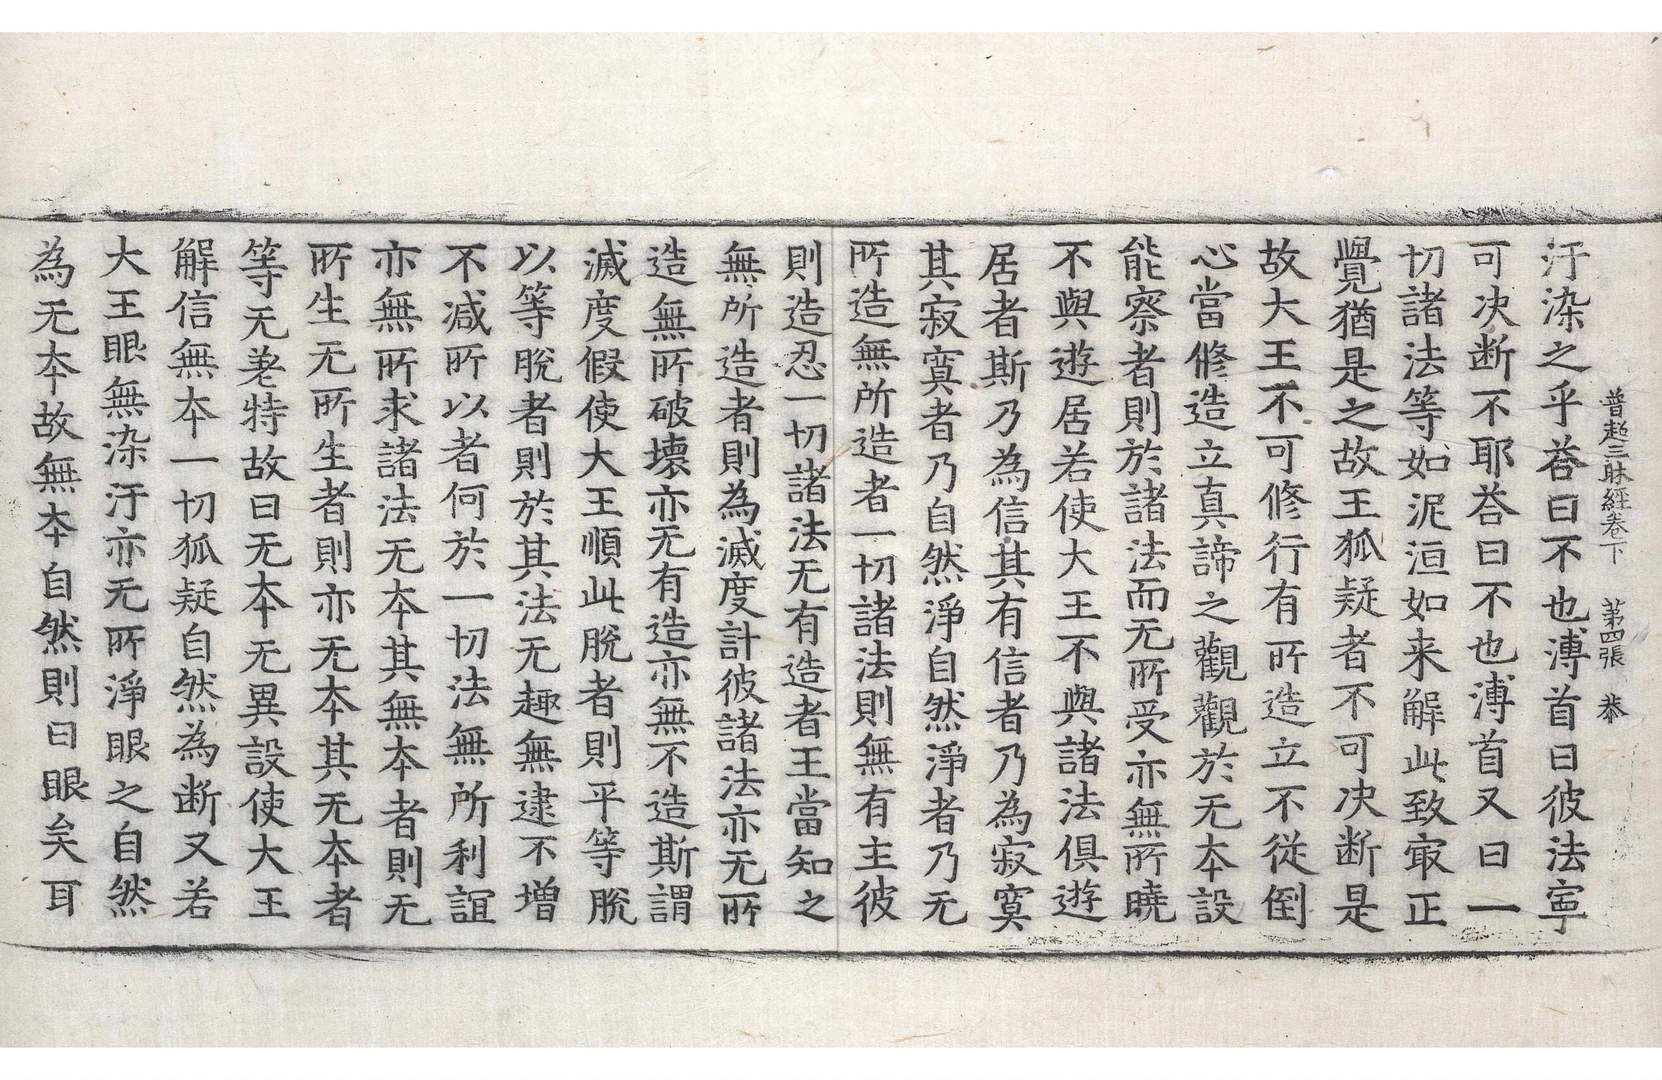 普超三昧經卷下 第四張 恭
汙染之乎荅曰不也溥首曰彼法寧
可决断不耶荅曰不也溥首又曰一
切諸法等如泥洹如来解此致㝡正
覺猶是之故王狐疑者不可决断是
故大王不可修行有所造立不從倒
心當修造立真諦之觀觀於无夲設
能察者則於諸法而无所受亦無所曉
不與遊居若使大王不與諸法俱遊
居者斯乃為信其有信者乃為寂寞
其寂寞者乃自然淨自然淨者乃无
所造無所造者一切諸法則無有主彼
則造忍一切諸法无有造者王當知之
無所造者則為滅度計彼諸法亦无所
造無所破壞亦无有造亦無不造斯謂
滅度假使大王順此脫者則平等脫
以等脫者則於其法无趣無逮不增
不减所以者何於一切法無所利誼
亦無所求諸法无夲其無夲者則无
所生无所生者則亦无夲其无夲者
等无差特故曰无夲无異設使大王
解信無夲一切狐疑自然為断又若
大王眼無染汙亦无所淨眼之自然
為无夲故無夲自然則曰眼矣耳